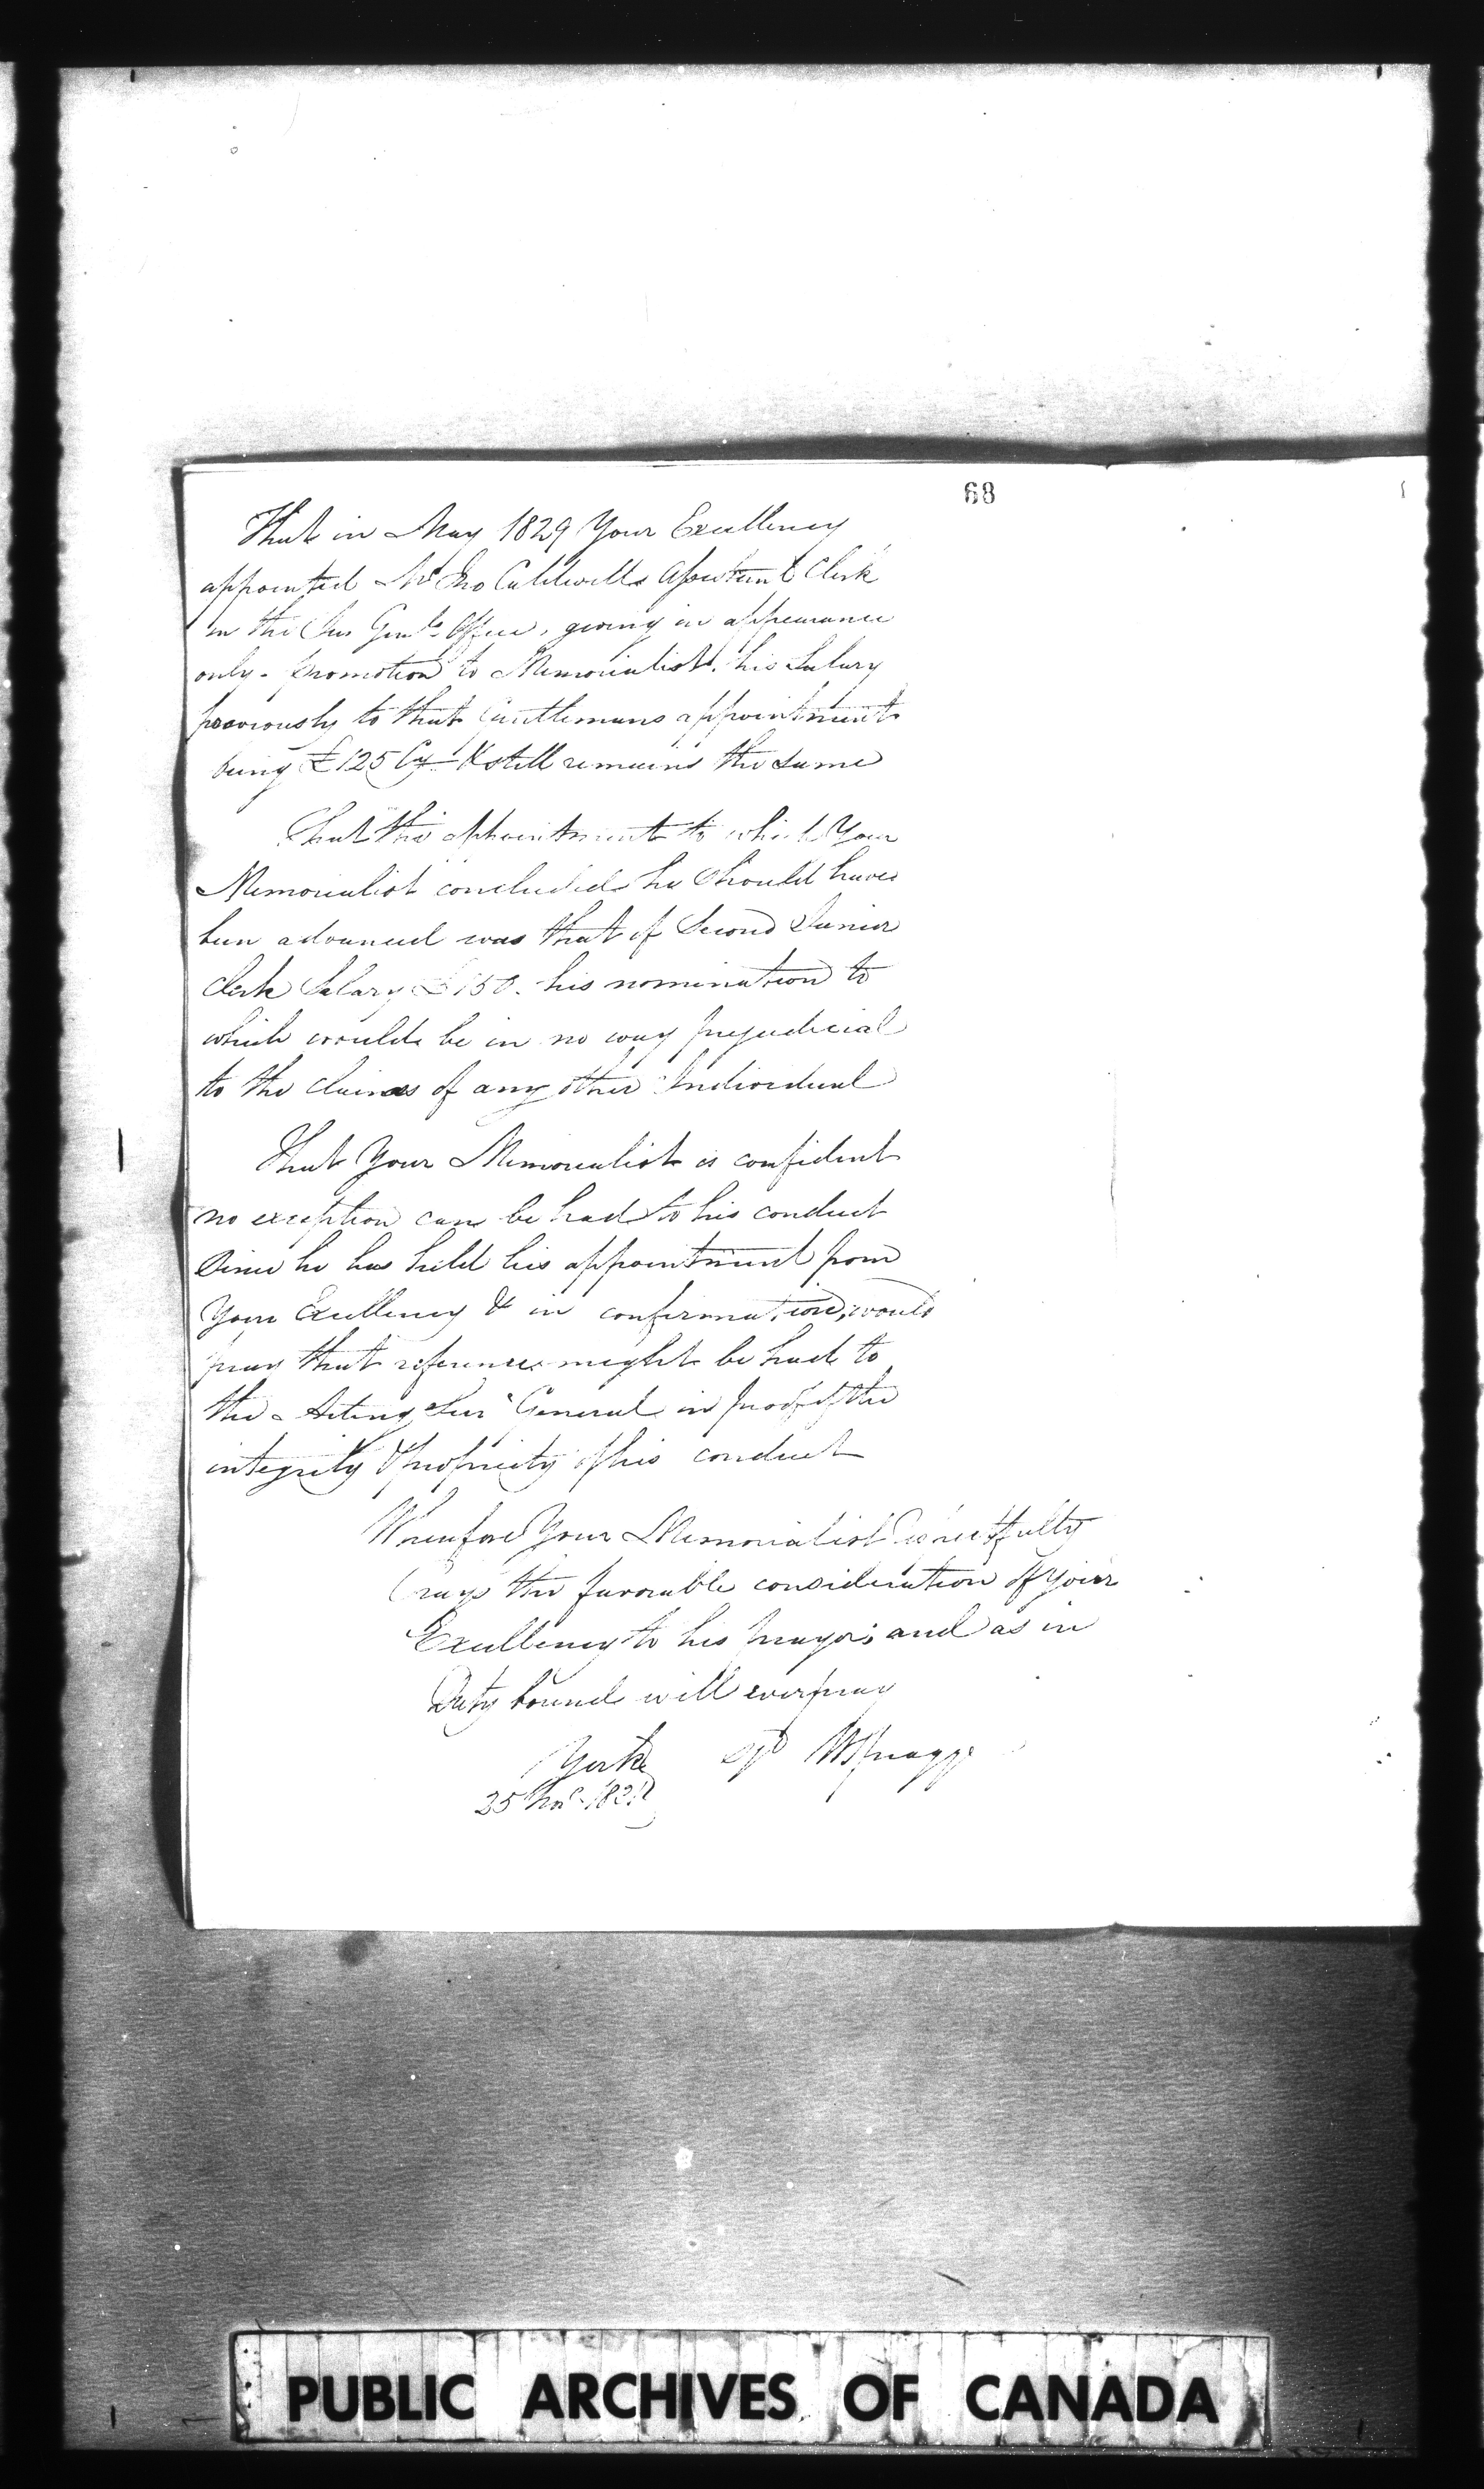 68
That in May 1829 Your Excellency
appointed Mr Jno Caldwell Assistant Clerk
in the Sur Genls Office, giving in appearance
only - promotion to Memorialist, his Salary
previously to that Gentlemans appointment
being £125 Cy & still remains the same
That the appointment to which Your
Memorialist concluded he should have
been advanced was that of Second Junior
Clerk Salary £150. his nomination to
which would be in no way prejudicial
to the claims of any other Individual
That Your Memorialist is confident
no exception can be had to his conduct
Since he has held his appointment from
Your Excellency & in confirmation, would
pray that reference might be had to
the Acting Sur General in proof of the
integrity & propriety of his conduct
Wherefore Your Memorialist Respectfully
Craves the favorable consideration of Your
Excellency to his prayer; and as in
Duty bound will ever pray
York sgd W Spragge
25 Novr
PUBLIC ARCHIVES OF CANADA